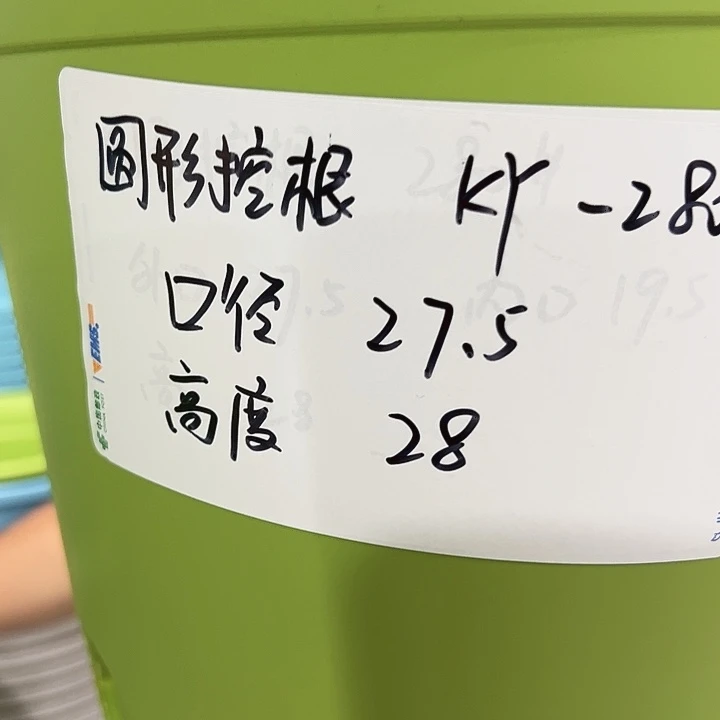 圆形控根 KY-280
口径 27.5
高度 28
EMS
中国邮政
CHINA POST